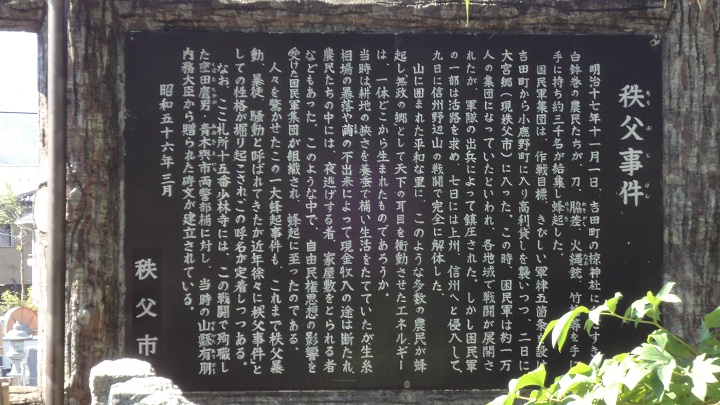 秩父事件
ちちぶじけん
明治十七年十一月一日、吉田町の椋神社に
すき
白鉢巻の農民たちが、刀、脇差、火縄銃、竹
を手に
手に持ち約三千名が結集し蜂起した。
困民軍集団は、作戦目標、きびしい軍律五箇条を設
吉田町から小鹿野町に入り高利貸しを襲いつつ、二日に
大宮郷（現秩父市）に入った。この時、困民軍は約一万
人の集団になっていたといわれ、各地域で戦闘が展開さ
れたが、軍隊の出兵によって鎮圧された。しかし困民軍
の一部は活路を求め、七日には上州、信州へと侵入して、
九日に信州野辺山の戦闘で完全に解体した。
山に囲まれた平和な里に、このような多数の農民が蜂
起し無政の郷として天下の耳目を衝動させたエネルギー
は、一体どこから生まれたものであろうか。
当時は耕地の狭さを養蚕で補い生活をたてていたが生糸
相場の暴落や繭の不出来によって現金収入の途は断たれ、
農民たちの中には、夜逃げする者、家屋敷をとられる者
などもあった。このような中で、自由民権思想の影響を
受けた困民軍集団が組織され、蜂起に至ったのである。
人々を驚かせたこの一大蜂起事件も、これまで秩父暴
動、暴徒、騒動と呼ばれてきたが近年徐々に秩父事件と
しての性格が堀り起こされこの呼名が定着しつつある。
なお、ここ札所十五番少林寺には、この戦闘で殉職し
た窪田鷹男・青木與市両警部補に対し、当時の山縣有朋
内務大臣から贈られた碑文が建立されている。
昭和五十六年三月
秩父市